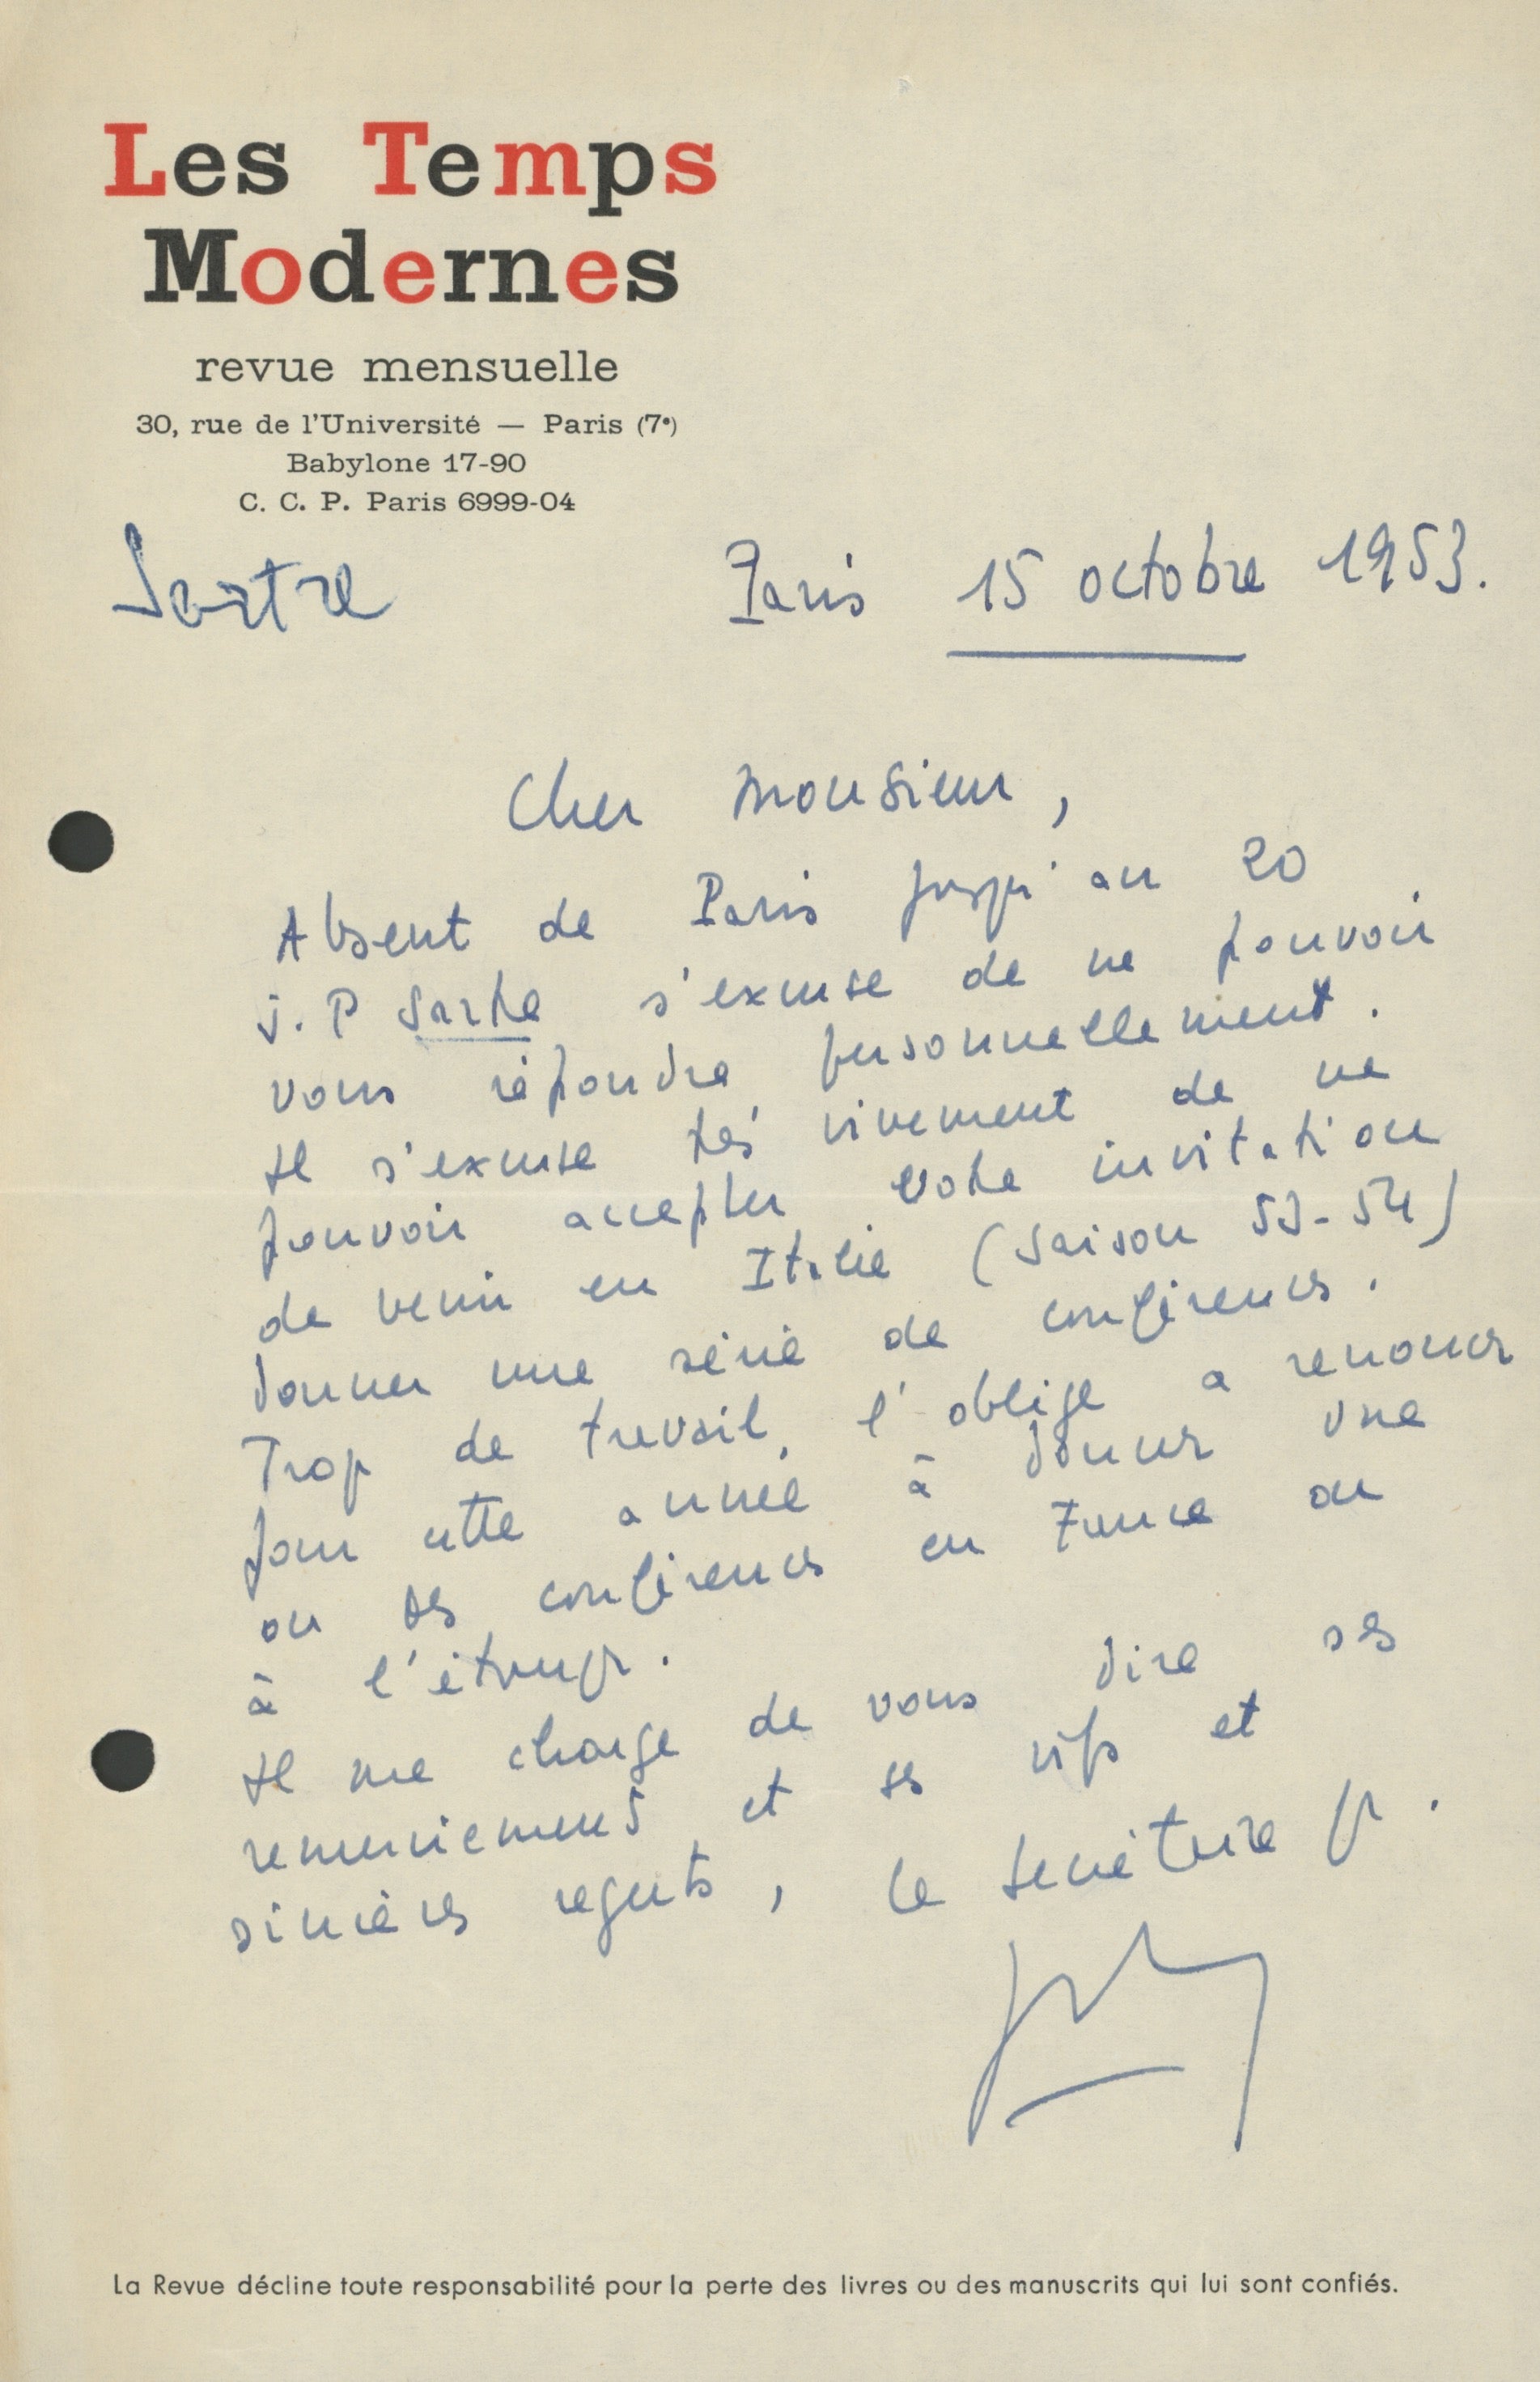 Les Temps
Modernes
revue mensuelle
30, rue de l'Université — Paris (7e)
Babylone 17-90
C. C. P. Paris 6999-04
Sartre
Paris 15 octobre 1953.
Cher Monsieur,
Absent de Paris jusqu'au 20
J. P Sartre s'excuse de ne pouvoir
vous répondre personnellement.
Il s'excuse très vivement de ne
pouvoir accepter votre invitation
de venir en Italie (saison 53-54)
donner une série de conférences.
Trop de travail l'oblige a renoncer
pour cette année à donner une
ou des conférences en France ou
à l'étranger.
Il me charge de vous dire ses
remerciements et ses vifs et
sincères regrets, le secrétaire
La Revue décline toute responsabilité pour la perte des livres ou des manuscrits qui lui sont confiés.